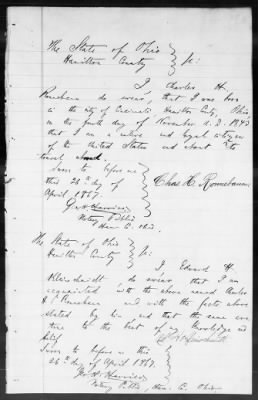 The State of Ohio
Hamilton County } ss:
I, Charles H.
do swear, that I was born
in the city of Hamilton City, Ohio
on the fourth day of November A.D. 1843
that I am a native and loyal citizen
of the United States and about to
travel
Sworn to before me
this 26th day of
April 1867.
Chas H.
Notary Public
Ham C. Ohio.
The State of Ohio
Hamilton County } ss:
I, Edward H.
do swear that I am
acquainted with the above named Charles
H. and with the facts above
stated by him and that the same are
true to the best of my knowledge and
belief
Sworn to before me this
26th day of April 1867.
Notary Public, Ham. C. Ohio